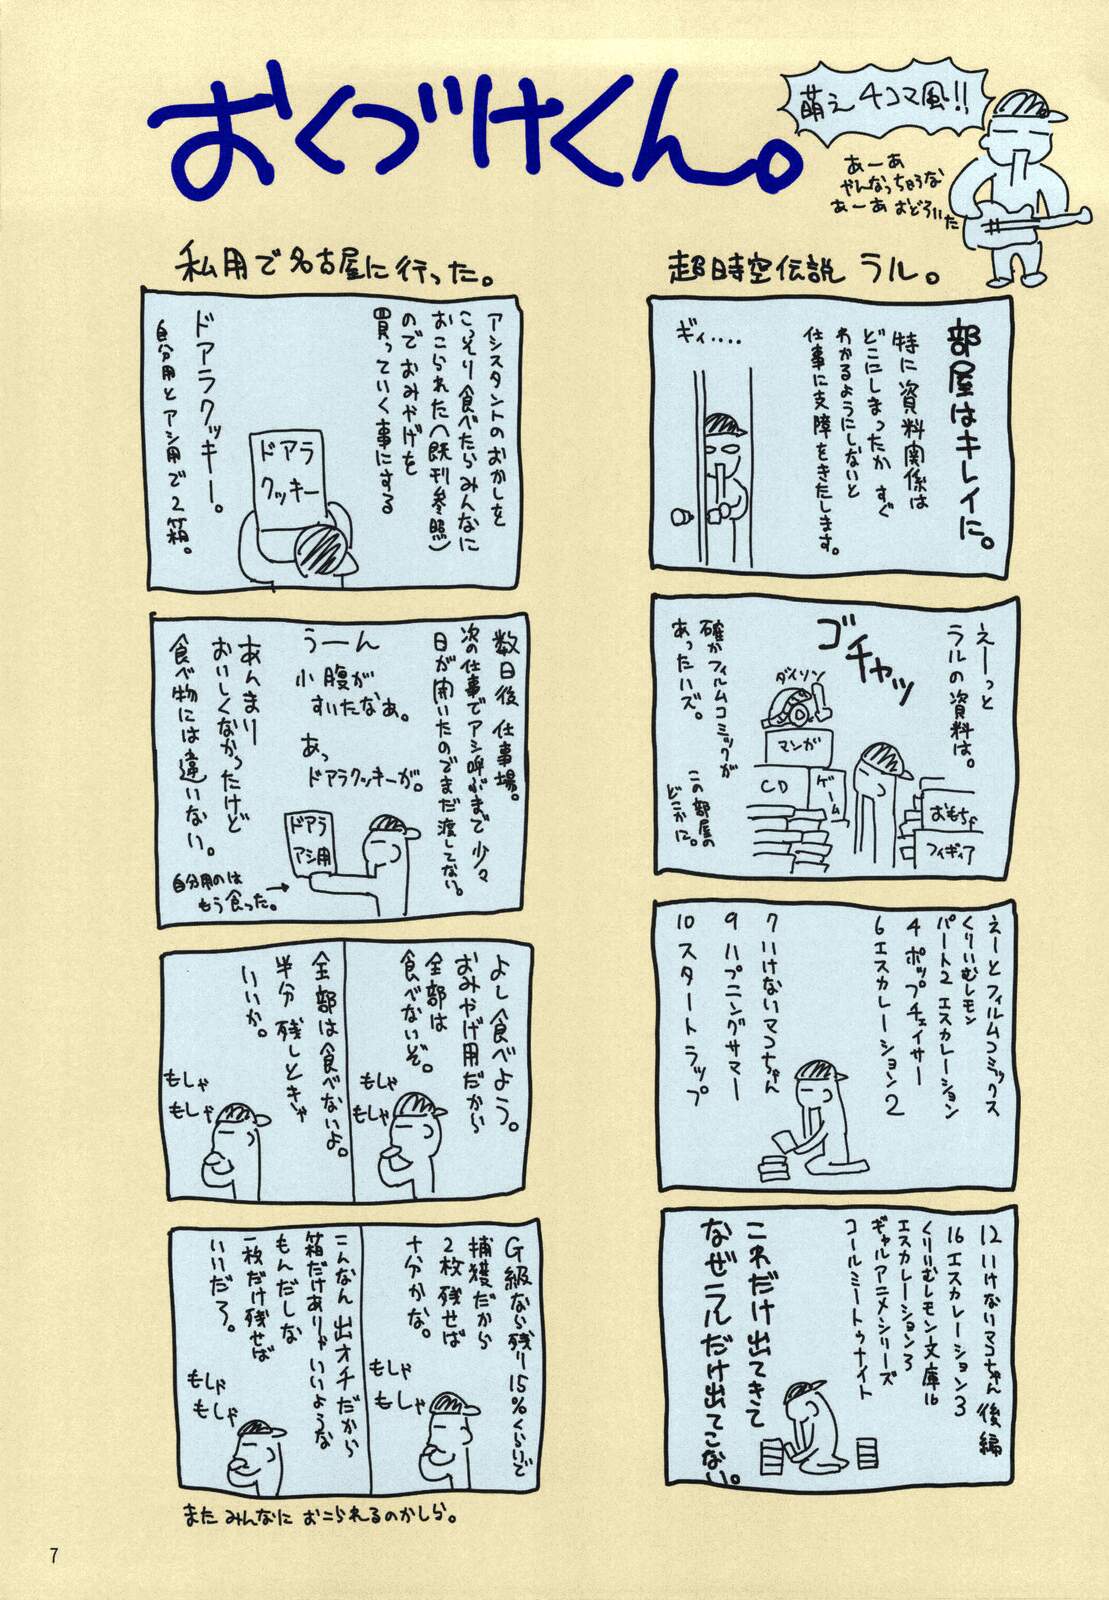 おくづけくん。
萌え4コマ風!!
あーあ
やんなっちゃうな
あーあ おどろいた
超時空伝説 ラル。
部屋はキレイに。
特に資料関係は
どこにしまったか すぐ
わかるようにしないと
仕事に支障をきたします。
ギィ‥‥
えーっと
ラルの資料は。
ゴチャッ
ダイソン
マンガ
CD
ゲーム
おもちゃ
フィギィア
確かフィルムコミックが
あったハズ。
この部屋の
どこかに。
えーとフィルムコミックス
くりいむレモン
パート2 エスカレーション
4 ポップチェイサー
6 エスカレーション2
7 いけないマコちゃん
9 ハプニングサマー
10 スタートラップ
12 いけないマコちゃん 後編
16 エスカレーション3
くりいむレモン文庫16
エスカレーション3
ギャルアニメシリーズ
コールミートゥナイト
これだけ出てきて
なぜラルだけ出てこない。
私用で名古屋に行った。
アシスタントのおかしを
こっそり食べたらみんなに
おこられた(既刊参照)
ので おみやげを
買っていく事にする
ドアラクッキー。
自分用とアシ用で2箱。
ドアラ
クッキー
数日後 仕事場。
次の仕事でアシ呼ぶまで少々
日が開いたのでまだ渡してない。
うーん
小腹が
すいたなあ。
あっ
ドアラクッキーが。
あんまり
おいしくなかったけど
食べ物には違いない。
ドアラ
アシ用
自分用のは
もう食った。
よし食べよう。
おみやげ用だから
全部は
食べないぞ。
もしゃ
もしゃ
全部は食べないよ。
半分 残しときゃ
いいか。
もしゃ
もしゃ
G級なら残り15%くらいで
捕獲だから
2枚残せば
十分かな。
もしゃ
もしゃ
こんなん出オチだから
箱だけありゃいいような
もんだしな
一枚だけ残せば
いいだろ。
もしゃ
もしゃ
また みんなに おこられるのかしら。
7